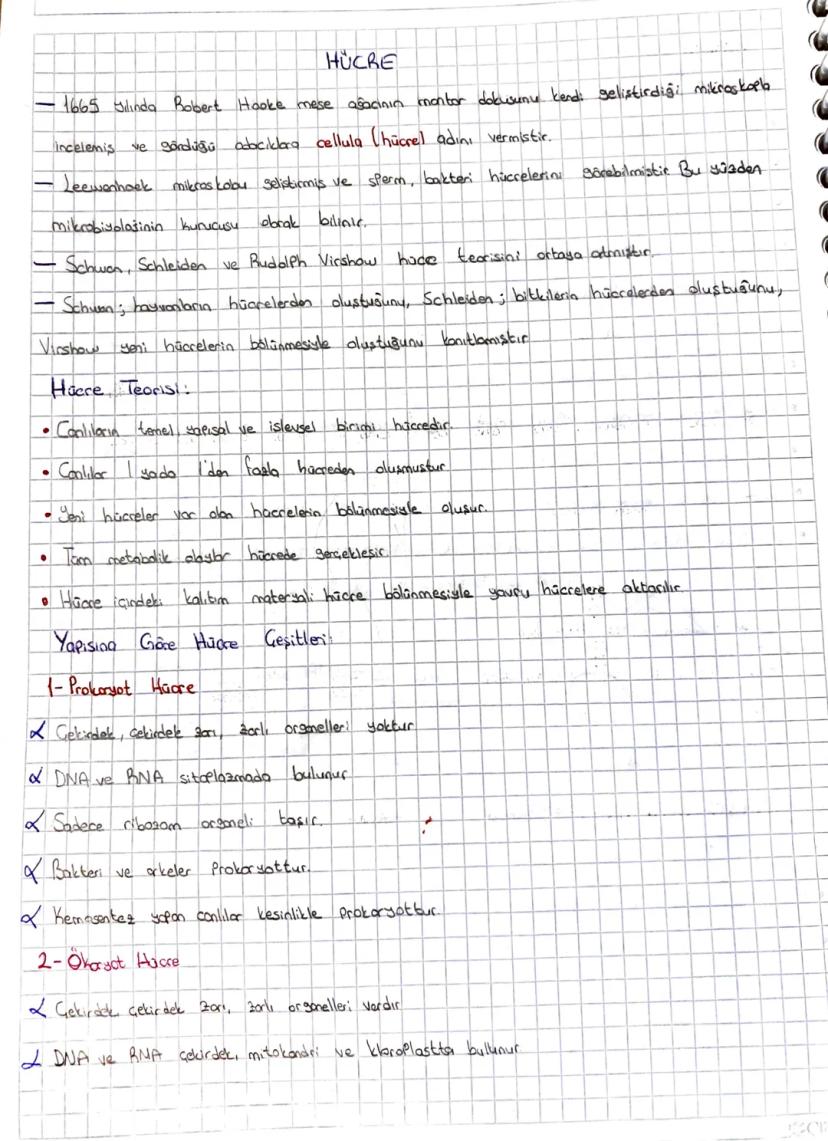 HÜCRE
— 1665 yılında Robert Hooke meşe ağacının mantar dokusunu kendi geliştirdiği mikroskopla
incelemiş ve gördüğü odacıklara cellula (hücre) adını vermiştir.
— Leewenhoek mikroskobu geliştirmiş ve sperm, bakteri hücrelerini görebilmiştir Bu yüzden
mikrobiyolojinin kurucusu olarak bilinir.
— Schwan, Schleiden ve Rudolph Virshow hücre teorisini ortaya atmıştır.
— Schwan; hayvanların hücrelerden oluştuğunu, Schleiden; bitkilerin hücrelerden oluştuğunu,
Virshow yeni hücrelerin bölünmesiyle oluştuğunu kanıtlamıştır
Hücre Teorisi:
• Canlıların temel, yapısal ve işlevsel birimi hücredir.
• Canlılar 1 yada 1'den fazla hücreden oluşmuştur
• Yeni hücreler var olan hücrelerin bölünmesiyle oluşur.
• Tüm metabolik olaylar hücrede gerçekleşir
• Hücre içindeki kalıtım materyali hücre bölünmesiyle yavru hücrelere aktarılır
Yapısına Göre Hücre Çeşitleri:
1- Prokaryot Hücre
α Çekirdek, çekirdek zarı, zarlı organelleri yoktur
α DNA ve RNA sitoplazmada bulunur
α Sadece ribozom organeli taşır.
α Bakteri ve arkeler Prokaryottur.
α Kemosentez yapan canlılar kesinlikle prokaryottur.
2- Ökaryot Hücre
α Çekirdek çekirdek zarı, zarlı organelleri vardır
α DNA ve RNA çekirdek, mitokondri ve kloroplastta bulunur